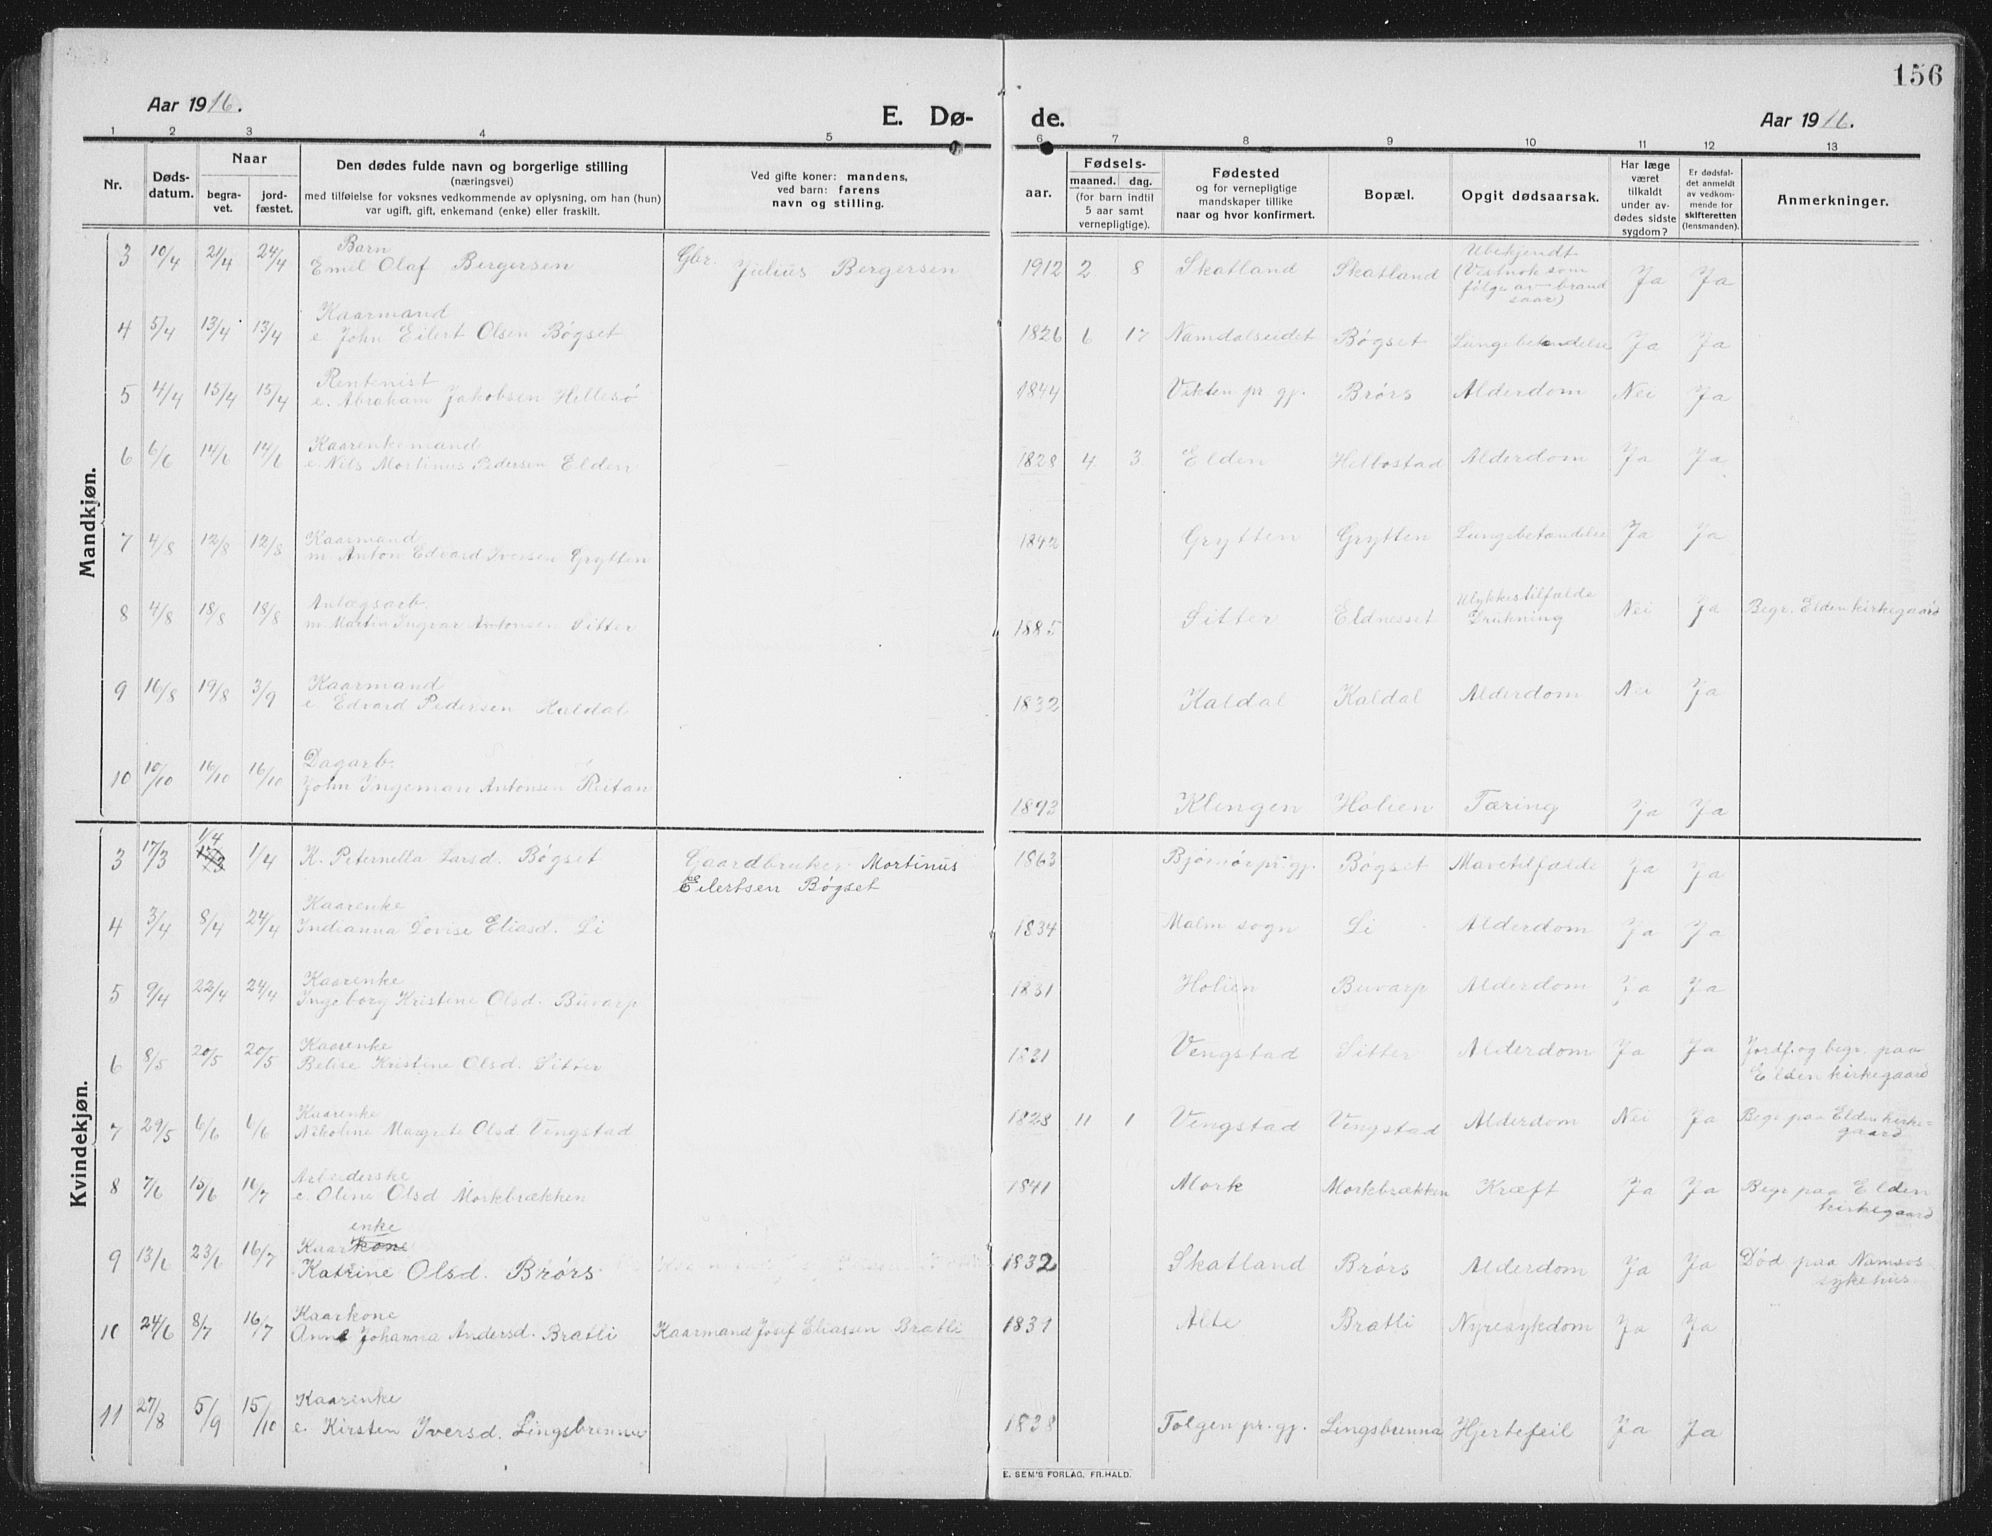 156
Aar 1916.
E. Dø-
de.
Aar 1916.
1 2 3 4 5 6 7 8 9 10 11 12 13
Nr.
Døds-
datum.
Naar
begra-
vet.
jord-
fæstet.
Den dødes fulde navn og borgerlige stilling
(næringsvei)
med tilføielse for voksnes vedkommende av oplysning, om han (hun)
var ugift, gift, enkemand (enke) eller fraskilt.
Ved gifte koner: mandens,
ved barn: farens
navn og stilling.
Fødsels-
aar.
maaned. dag.
(for barn indtil
5 aar samt
vernepligtige).
Fødested
og for vernepligtige
mandskaper tillike
naar og hvor konfirmert.
Bopæl.
Opgit dødsaarsak.
Har læge
været
tilkaldt
under av-
dødes sidste
sygdom?
Er dødsfal-
det anmeldt
av vedkom-
mende for
skifteretten
(lensmanden).
Anmerkninger.
Mandkjøn.
Barn
3 10/4 21/4 24/4 Emil Olaf Bergersen Gbr. Julius Bergersen 1912 2 8 Skatland Skatland Ubekjendt
(Vistnok som
følge av brand
saar) Ja Ja
Kaarmand
4 5/4 13/4 13/4 e John Eilert Olsen Bøgset 1826 6 17 Namdalseidet Bøgset Lungebetændelse Ja Ja
Rentenist
5 4/4 15/4 15/4 e. Abraham Jakobsen Hillesø 1844 Vikten pr gj. Brørs Alderdom Nei Ja
Kaarenkemand
6 6/6 14/6 14/6 e. Nils Mortinus Pedersen Elden 1828 4 3 Elden Helbostad Alderdom Ja Ja
Kaarmand
7 4/8 12/8 12/8 m Anton Edvard Iversen Grytten 1842 Grytten Grytten Lungebetændelse Ja Ja
Anlægsarb.
8 4/8 18/8 18/8 m Martin Ingvar Antonsen Sitter 1885 Sitter Eldnesset Ulykkestilfælde
Drukning Nei Ja Begr. Elden kirkegaard
Kaarmand
9 16/8 19/8 3/9 e Edvard Pedersen Kaldal 1832 Kaldal Kaldal Alderdom Nei Ja
Dagarb.
10 10/10 16/10 16/10 John Ingeman Antonsen Reitan 1893 Klingen Holien Tæring Ja Ja
Kvindekjøn.
1/4
3 17/3 17/3 1/4 K. Peternella Larsd. Bøgset Gaardbruker Mortinus
Eilertsen Bøgset 1863 Bjørnør pr. gj. Bøgset Mavetilfælde Ja Ja
Kaarenke
4 3/4 8/4 24/4 Indianna Lovise Eliasd. Li 1834 Malm sogn Li Alderdom Ja Ja
Kaarenke
5 9/4 22/4 24/4 Ingeborg Kristine Olsd. Buvarp 1831 Holien Buvarp Alderdom Ja Ja
Kaarenke
6 8/5 20/5 20/5 Kristine Olsd. Sitter 1831 Vengstad Sitter Alderdom Ja Ja Jordf. og begr. paa
Elden kirkegaard
Kaarenke
7 29/5 6/6 6/6 Nikoline Margrete Olsd Vengstad 1828 11 1 Vengstad Vengstad Alderdom Nei Ja Begr paa Elden kirke-
gaard
Arbeiderske
8 7/6 15/6 16/7 e. Oline Olsd Morkbrækken 1841 Mork Morkbrækken Kræft Ja Ja Begr paa Elden
kirkegaard
enke
Kaarkone
9 13/6 23/6 16/7 Katrine Olsd. Brørs 1832 Skatland Brørs Alderdom Ja Ja Død paa Namsos
sykehus
Kaarkone
10 24/6 8/7 16/7 Anne Johanna Andersd. Bratli Kaarmand Josef Eliassen Bratli 1831 Alte Bratli Nyresykdom Ja Ja
Kaarenke
11 27/8 5/9 15/10 e. Kirsten Iversd. Lingsbrenna 1838 Tolgen pr. gj. Lingsbrenna Hjertefeil Ja Ja
E. SEM'S FORLAG, FR.HALD.